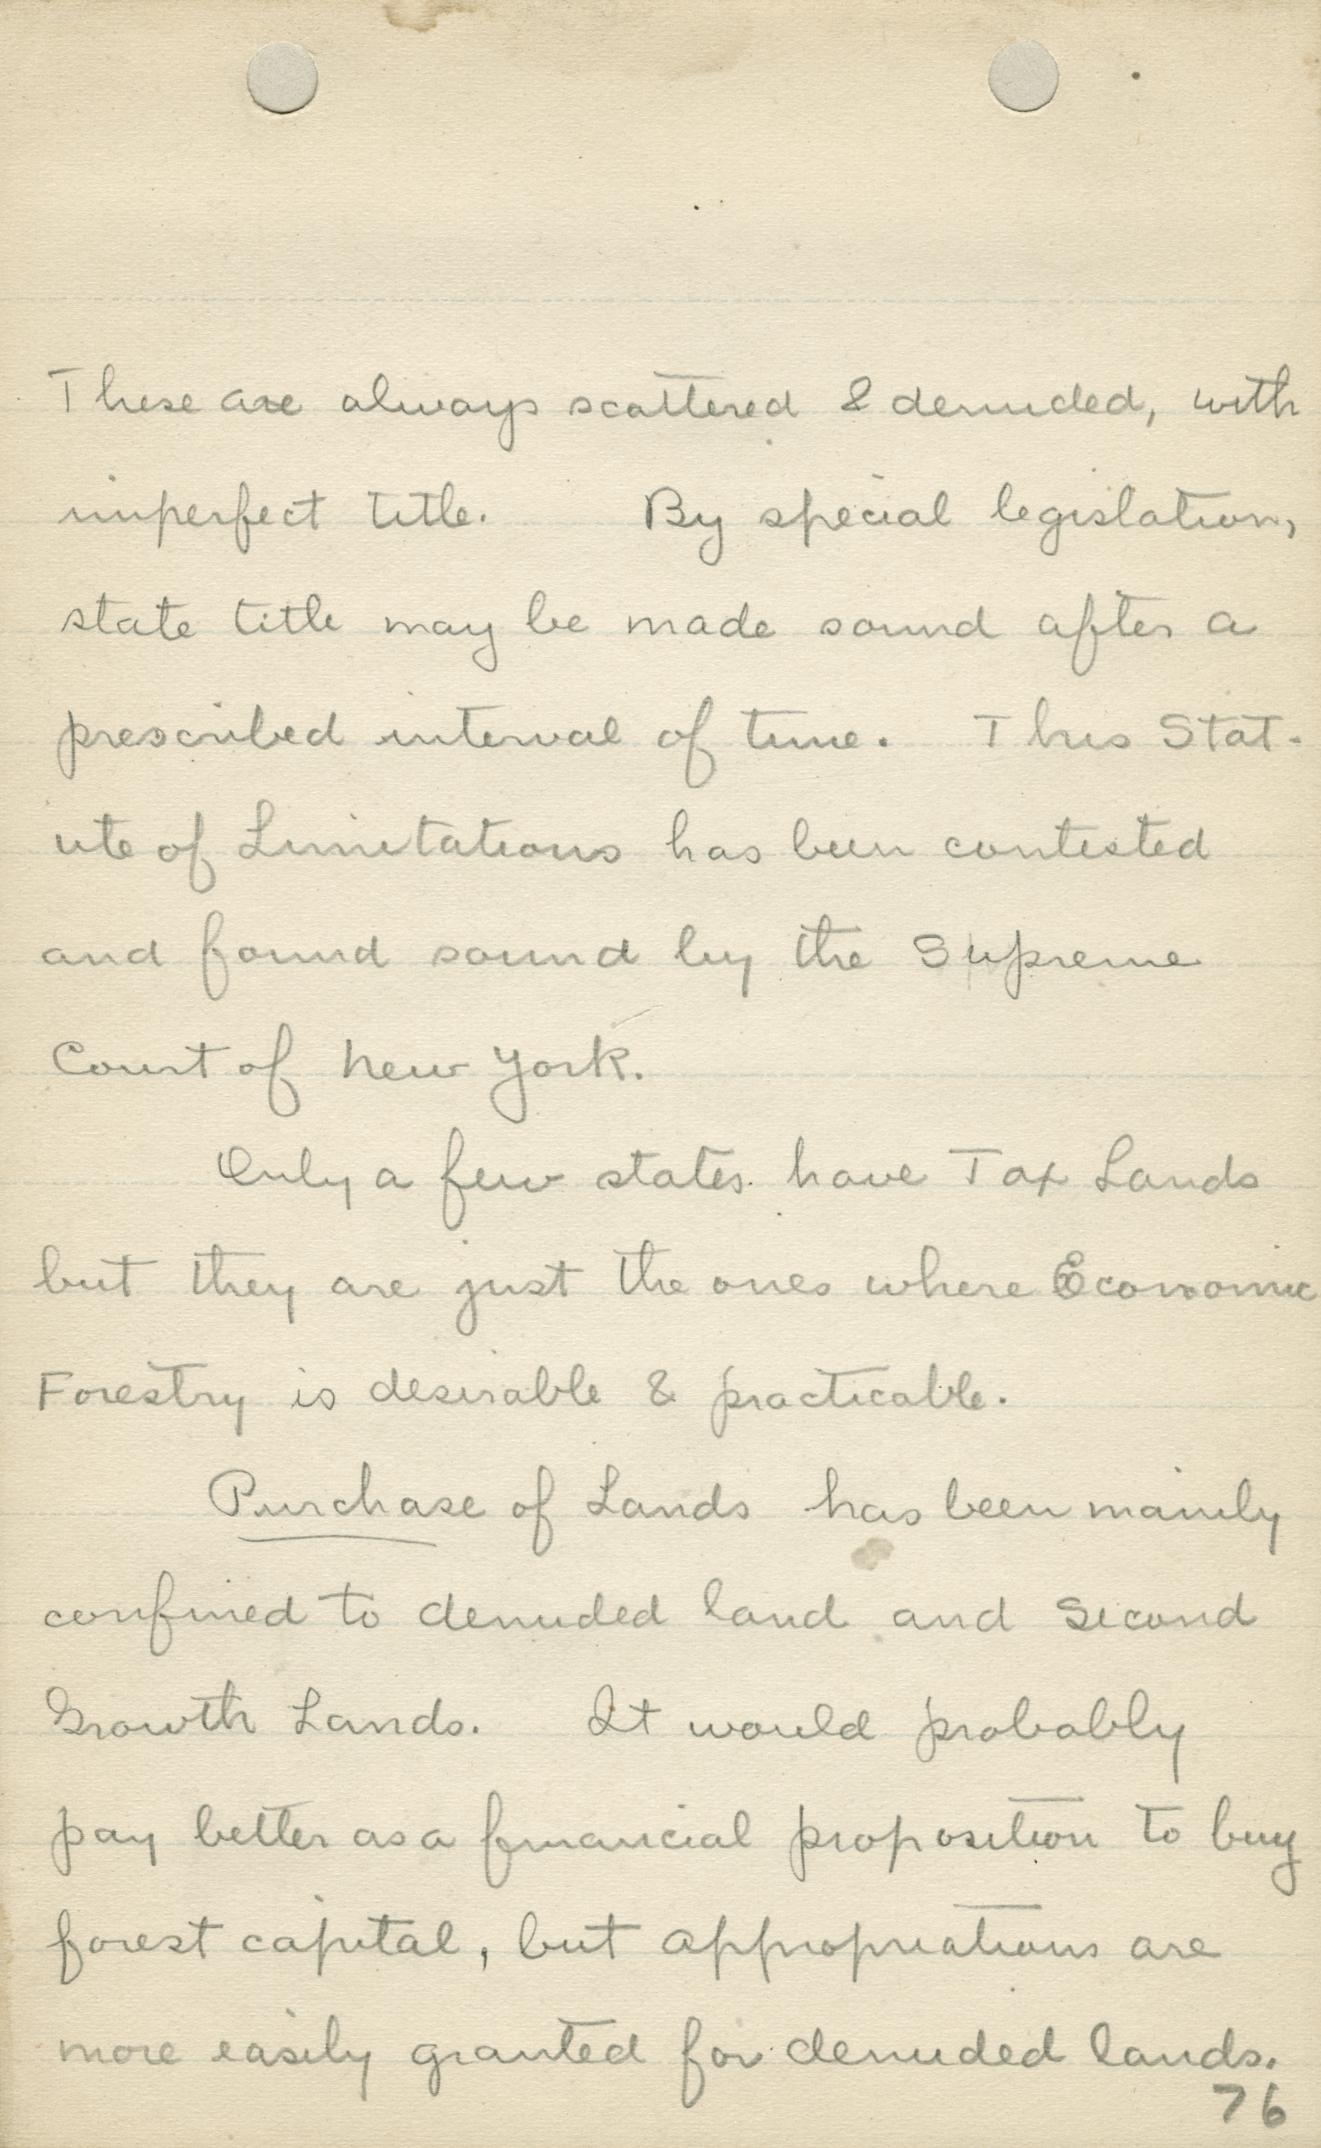 These are always scattered & denuded, with
imperfect title. By special legislation,
state title may be made sound after a
prescribed interval of time. This Stat-
ute of Limitations has been contested
and found sound by the Supreme
Court of New York.
Only a few states have Tax Lands
but they are just the ones where Economic
Forestry is desirable & practicable.
Purchase of Lands has been mainly
confined to denuded land and Second
Growth Lands. It would probably
pay better as a financial proposition to buy
forest capital, but appropriations are
more easily granted for denuded lands.
76